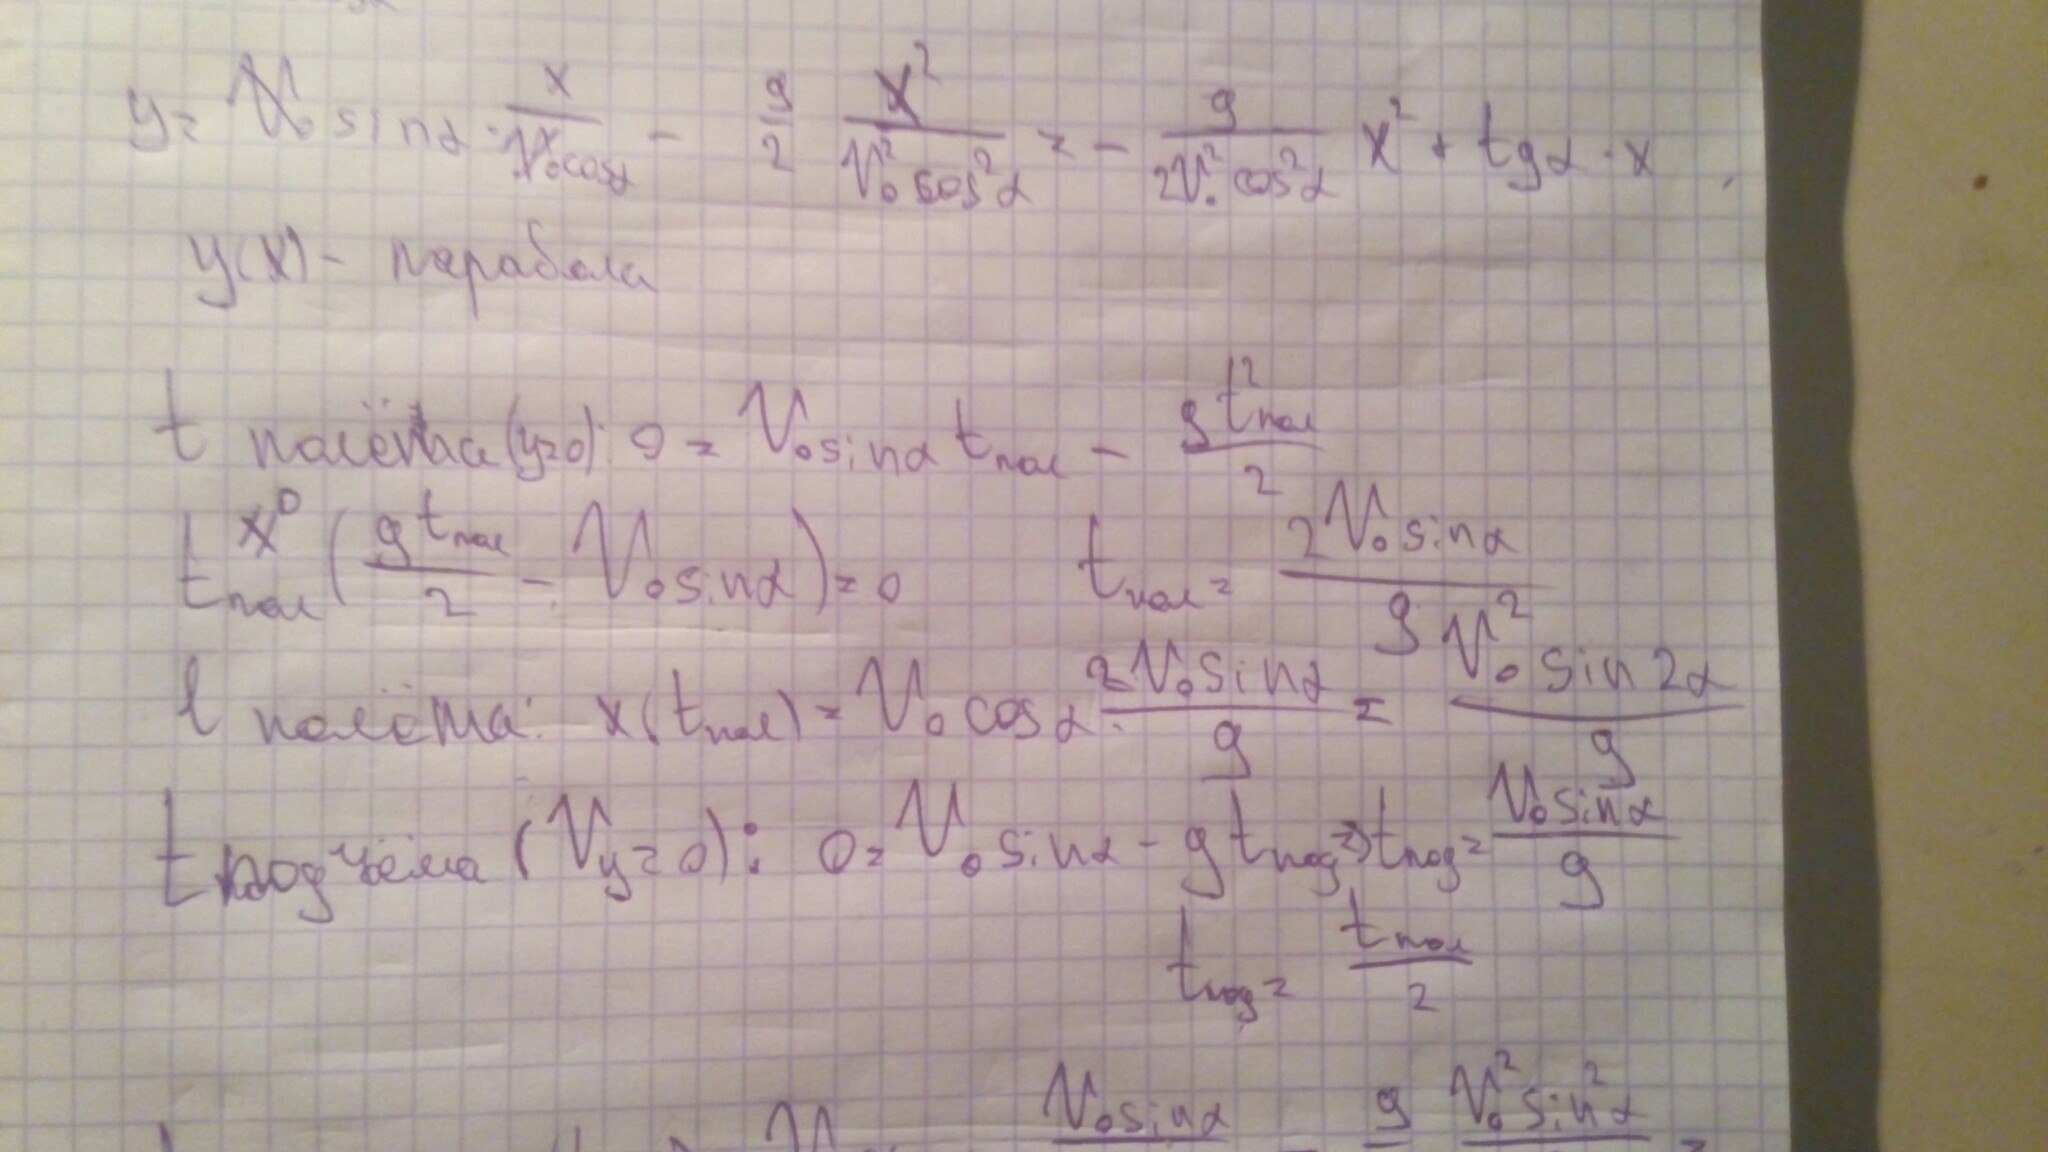 y = V₀ sinα · x/(V₀cosα) − g/2 x²/(V₀² cos²α) = − g/(2V₀² cos²α) x² + tgα · x,
y(x) - парабола
t полёта (y=0): 0 = V₀ sinα tпол − g t²пол/2
tпол ≠ 0 (g tпол/2 − V₀ sinα) = 0 tпол = 2V₀ sinα/g
l полёта: x(tпол) = V₀ cosα · 2V₀ sinα/g = V₀² sin2α/g
t подъёма (Vy=0): 0 = V₀ sinα − g tпод => tпод = V₀ sinα/g
tпод = tпол/2
V₀ sinα − g V₀² sin²α =